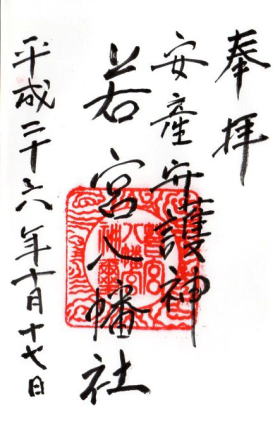 奉拝
安産守護神
若宮八幡社
平成二十六年十月十七日